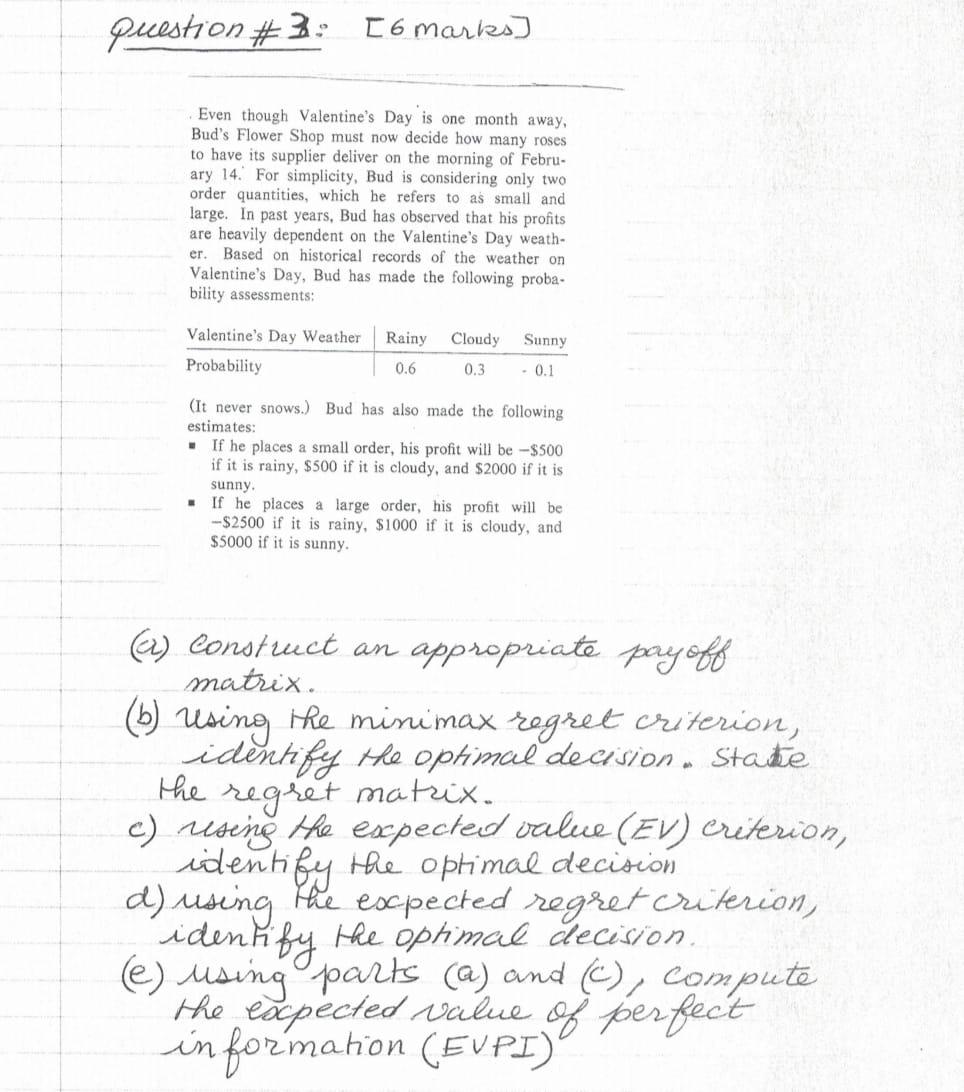 Question # 3: [6 marks]
. Even though Valentine's Day is one month away,
Bud's Flower Shop must now decide how many roses
to have its supplier deliver on the morning of Febru-
ary 14. For simplicity, Bud is considering only two
order quantities, which he refers to as small and
large. In past years, Bud has observed that his profits
are heavily dependent on the Valentine's Day weath-
er. Based on historical records of the weather on
Valentine's Day, Bud has made the following proba-
bility assessments:
Valentine's Day Weather Rainy Cloudy Sunny
Probability 0.6 0.3 - 0.1
(It never snows.) Bud has also made the following
estimates:
▪ If he places a small order, his profit will be −$500
if it is rainy, $500 if it is cloudy, and $2000 if it is
sunny.
▪ If he places a large order, his profit will be
−$2500 if it is rainy, $1000 if it is cloudy, and
$5000 if it is sunny.
(a) Construct an appropriate payoff
matrix.
(b) Using the minimax regret criterion,
identify the optimal decision. State
the regret matrix.
c) using the expected value (EV) criterion,
identify the optimal decision
d) using the expected regret criterion,
identify the optimal decision.
(e) using parts (a) and (c), compute
the expected value of perfect
information (EVPI)